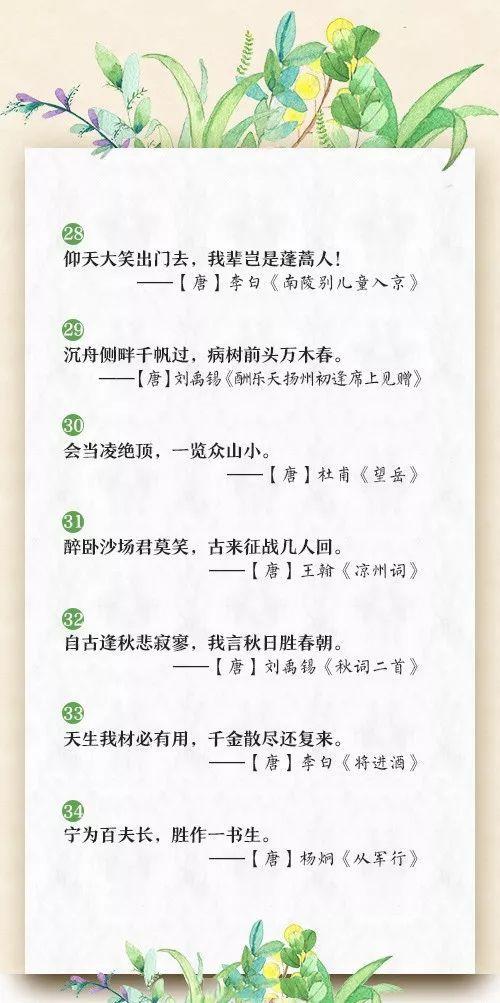 28
仰天大笑出门去，我辈岂是蓬蒿人！
——【唐】李白《南陵别儿童入京》
29
沉舟侧畔千帆过，病树前头万木春。
——【唐】刘禹锡《酬乐天扬州初逢席上见赠》
30
会当凌绝顶，一览众山小。
——【唐】杜甫《望岳》
31
醉卧沙场君莫笑，古来征战几人回。
——【唐】王翰《凉州词》
32
自古逢秋悲寂寥，我言秋日胜春朝。
——【唐】刘禹锡《秋词二首》
33
天生我材必有用，千金散尽还复来。
——【唐】李白《将进酒》
34
宁为百夫长，胜作一书生。
——【唐】杨炯《从军行》